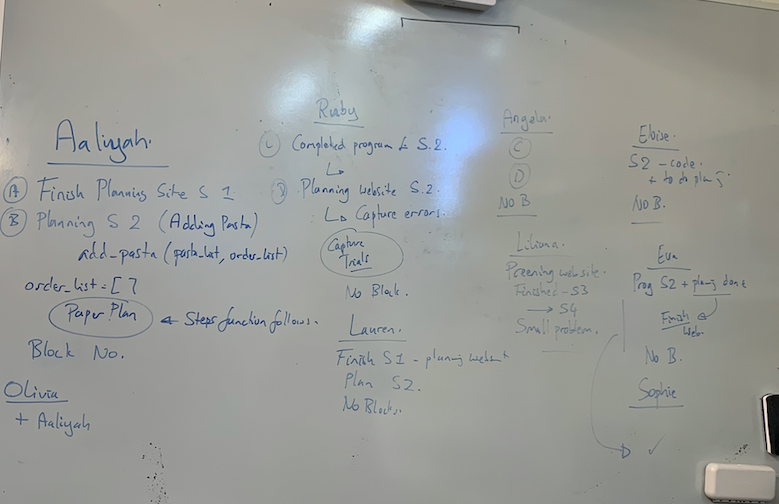 Aaliyah.
A Finish Planning Site S 1
B Planning S 2 (Adding Pasta)
add_pasta (pasta_list, order_list)
order_list = [ ]
Paper Plan ← Steps function follows.
Block No.
Olivia
+ Aaliyah
Ruby
C Completed program S.2.
D Planning website S.2.
↳ Capture errors.
Capture
Trials
No Block.
Lauren.
Finish S1 - planning website
Plan S2.
No Blocks.
Angela.
C
D
No B
Liliana.
Planning website.
Finished - S3
→ S4
Small problem.
Eloise.
S2 - code.
+ to do
No B.
Eva
Prog S2 + planing done
Finish
Web.
No B.
Sophie
✓